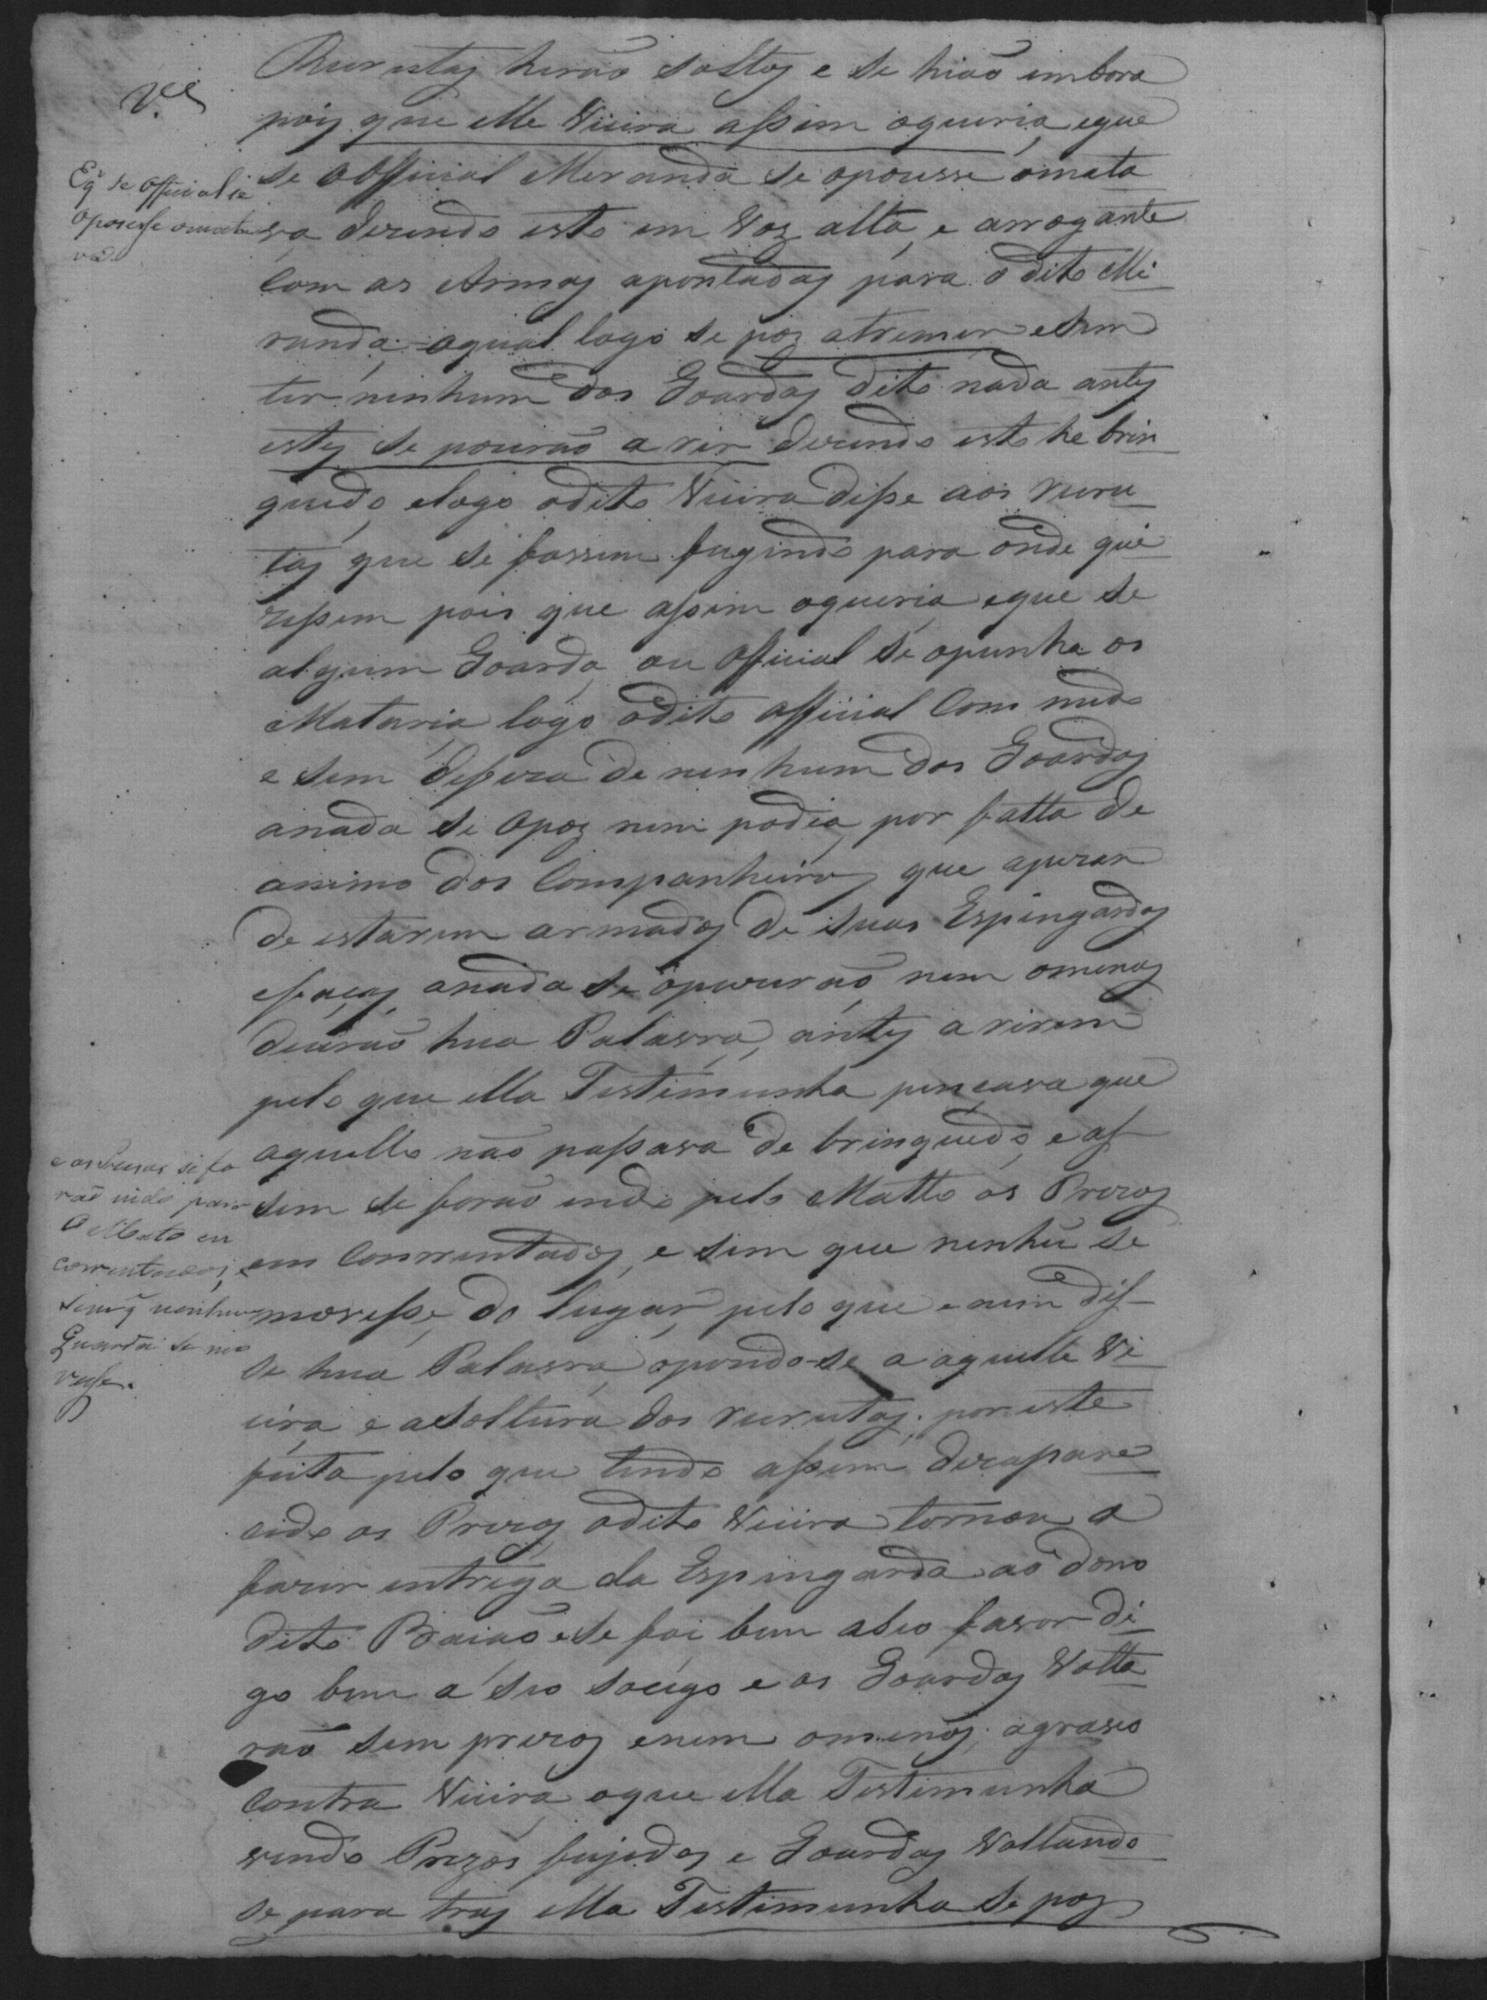 Rurutas herão soltos e se hião imbora
pois que elle Vieira assim oqueria, eque
se oOfficial Meranda se opousse omata
va dizendo isto em Vos alta, e arrogante
Com as Armas apontadas para o dito Mi
randa, oqual logo se pos atremer esem
ter ninhum dos Goardas dito nada antes
estes se pouzerão a rir dizendo isto he brin
quedo, elogo odito Vieira disse aos rucru
tas que se fossem fugindo para onde qui
zessem pois que assim oqueria eque se
algum Goarda, ou Official se opunha os
Mataria, logo odito official Com medo
e sem defeza de nenhum dos Goardas
anada se Opoz nem podia, por falta de
animo dos Companheiros, que apezar
de estarem armados de suas Espingardas
efacas, anada se opuzerão, nem omenos
dicerão hua Palavra, antes a rirem
pelo que ella Testimunha pençava que
aquillo não passava de brinquedo, e as
sim se forão indo pelo Matto os Prezos
em Correntados, e sem que nenhũ se
movesse do lugar, pelo que e nem dis
se hua Palavra, opondo-se a aquelle Vi
eira e asoltura dos rucrutas, por este
feita pelo que tendo assim dezapare
cido os Prezos, odito Vieira tornou a
fazer entrega da Espingarda ao dono
dito Baião ese foi bem aseo favor di
go bem a seo socego e os Goardas Volta
rão sem prezos enem omenos, agravo
Contra Vieira, oque ella Testimunha
vendo Prezos fujidos e Goardas Voltando
se para tras ella Testimunha se poz
Vª
Eq̃ se Official se
oposesse omata
va.
e os Prezos se fo
rão indo para
o Mato en
correntados, e
sem q̃ nenhum
Guarda se mo
vesse.